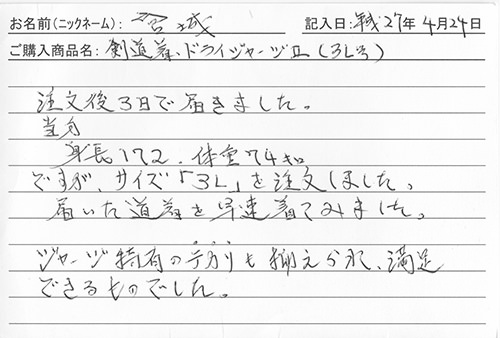 お名前(ニックネーム): 宮城 記入日: 平成27年4月24日
ご購入商品名: 剣道着・ドライジャージII (3L号)
注文後3日で届きました。
当方
身長172・体重74キロ
ですが、サイズ「3L」を注文しました。
届いた道着を早速着てみました。
ジャージ特有のテカリも抑えられ、満足
できるものでした。